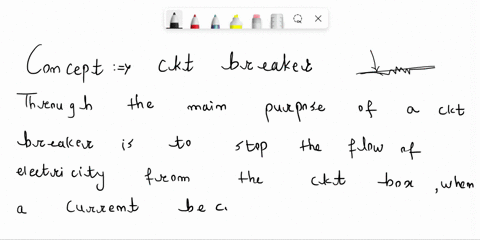 Concept :⇒ ckt breaker
Through the main purpose of a ckt
breaker is to stop the flow of
electricity from the ckt box , when
a current bec